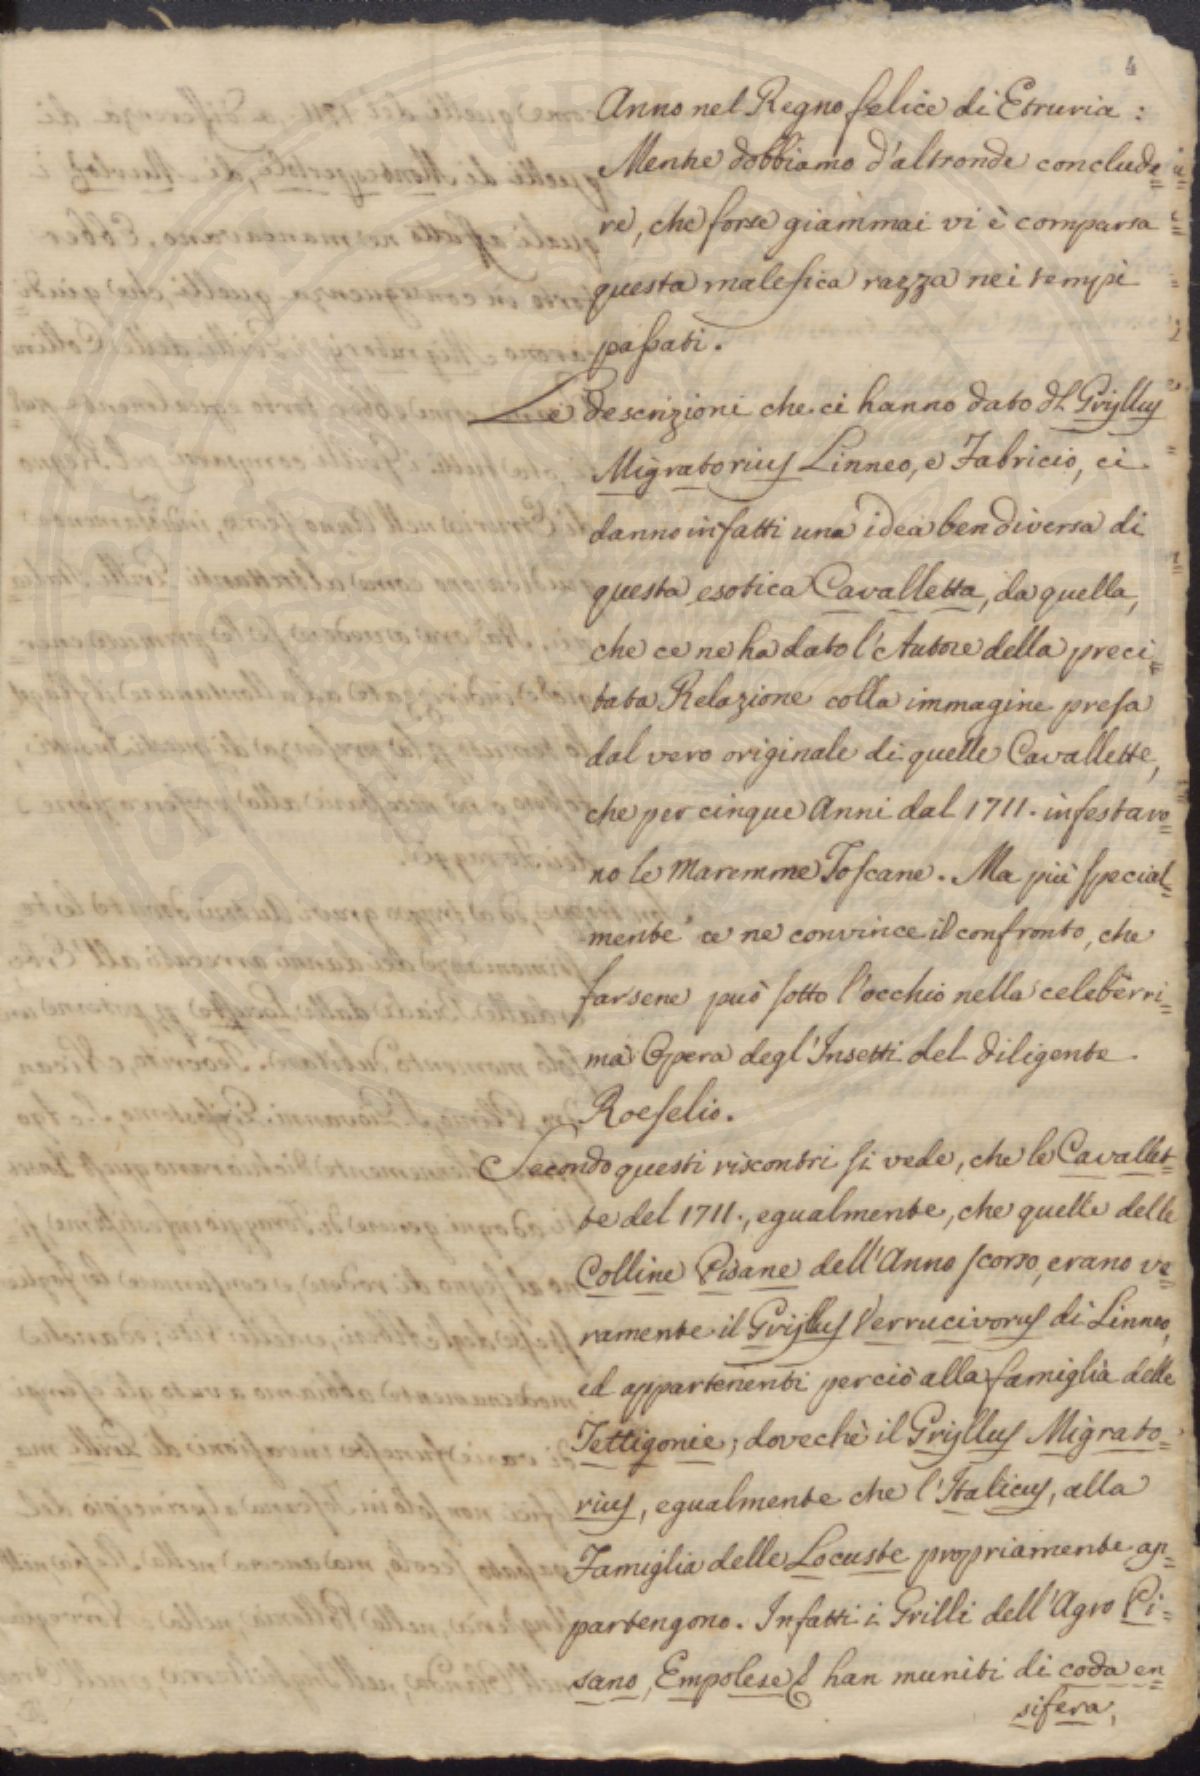 4
Anno nel Regno felice di Etruria :
Mentre dobbiamo d'altronde conclude=
re, che forse giammai vi è comparsa
questa malefica razza nei tempi
paſsati.
Le descrizioni che ci hanno dato dl Gryllus
Migratorius Linneo, e Fabricio, ci
danno infatti una idea ben diversa di
questa esotica Cavalletta, da quella,
che ce ne ha dato l'Autore della preci=
tata Relazione colla immagine preſa
dal vero originale di quelle Cavallette,
che per cinque Anni dal 1711. infestaro=
no le Maremme Toſcane. Ma più ſpecial=
mente ce ne convince il confronto, che
farsene può ſotto l'occhio nella celeberri=
ma Opera degl'Insetti del diligente
Roeſelio.
Secondo questi riscontri ſi vede, che le Cavallet=
te del 1711., egualmente, che quelle delle
Colline Pisane dell'Anno ſcorso, erano ve=
ramente il Gryllus Verrucivorus di Linneo,
ed appartenenti perciò alla famiglia delle
Tettigonie; dovechè il Gryllus Migrato=
rius, egualmente che l'Italicus, alla
Famiglia delle Locuste propriamente ap=
partengono. Infatti i Grilli dell'Agro Pi=
sano, Empolese han muniti di coda en=
sifera,